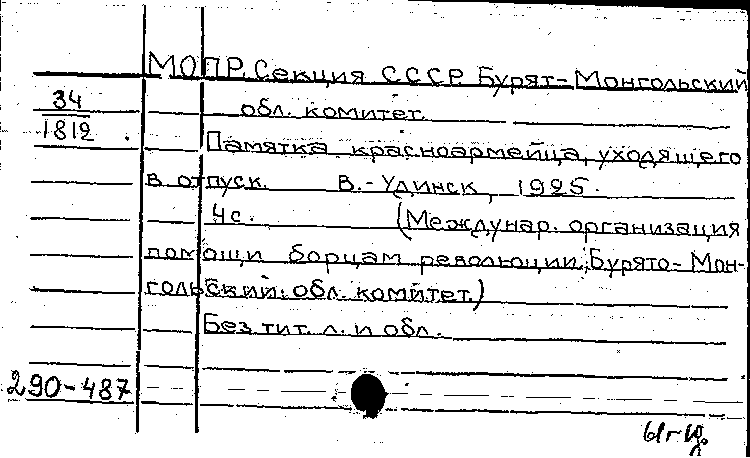 МОПР. Секция СССР. Бурят-Монгольский
обл. комитет.
34
1812
Памятка красноармейца, уходящего
в отпуск. В.-Удинск, 1925.
4с. (Междунар. организация
помощи борцам революции. Бурято-Мон-
гольский обл. комитет.)
Без тит. л. и обл.
290-487